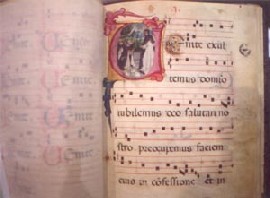 Venite exul
temus domino
iubilemus deo salutari no
stro preocupemus faciem
eius in cofessione et in